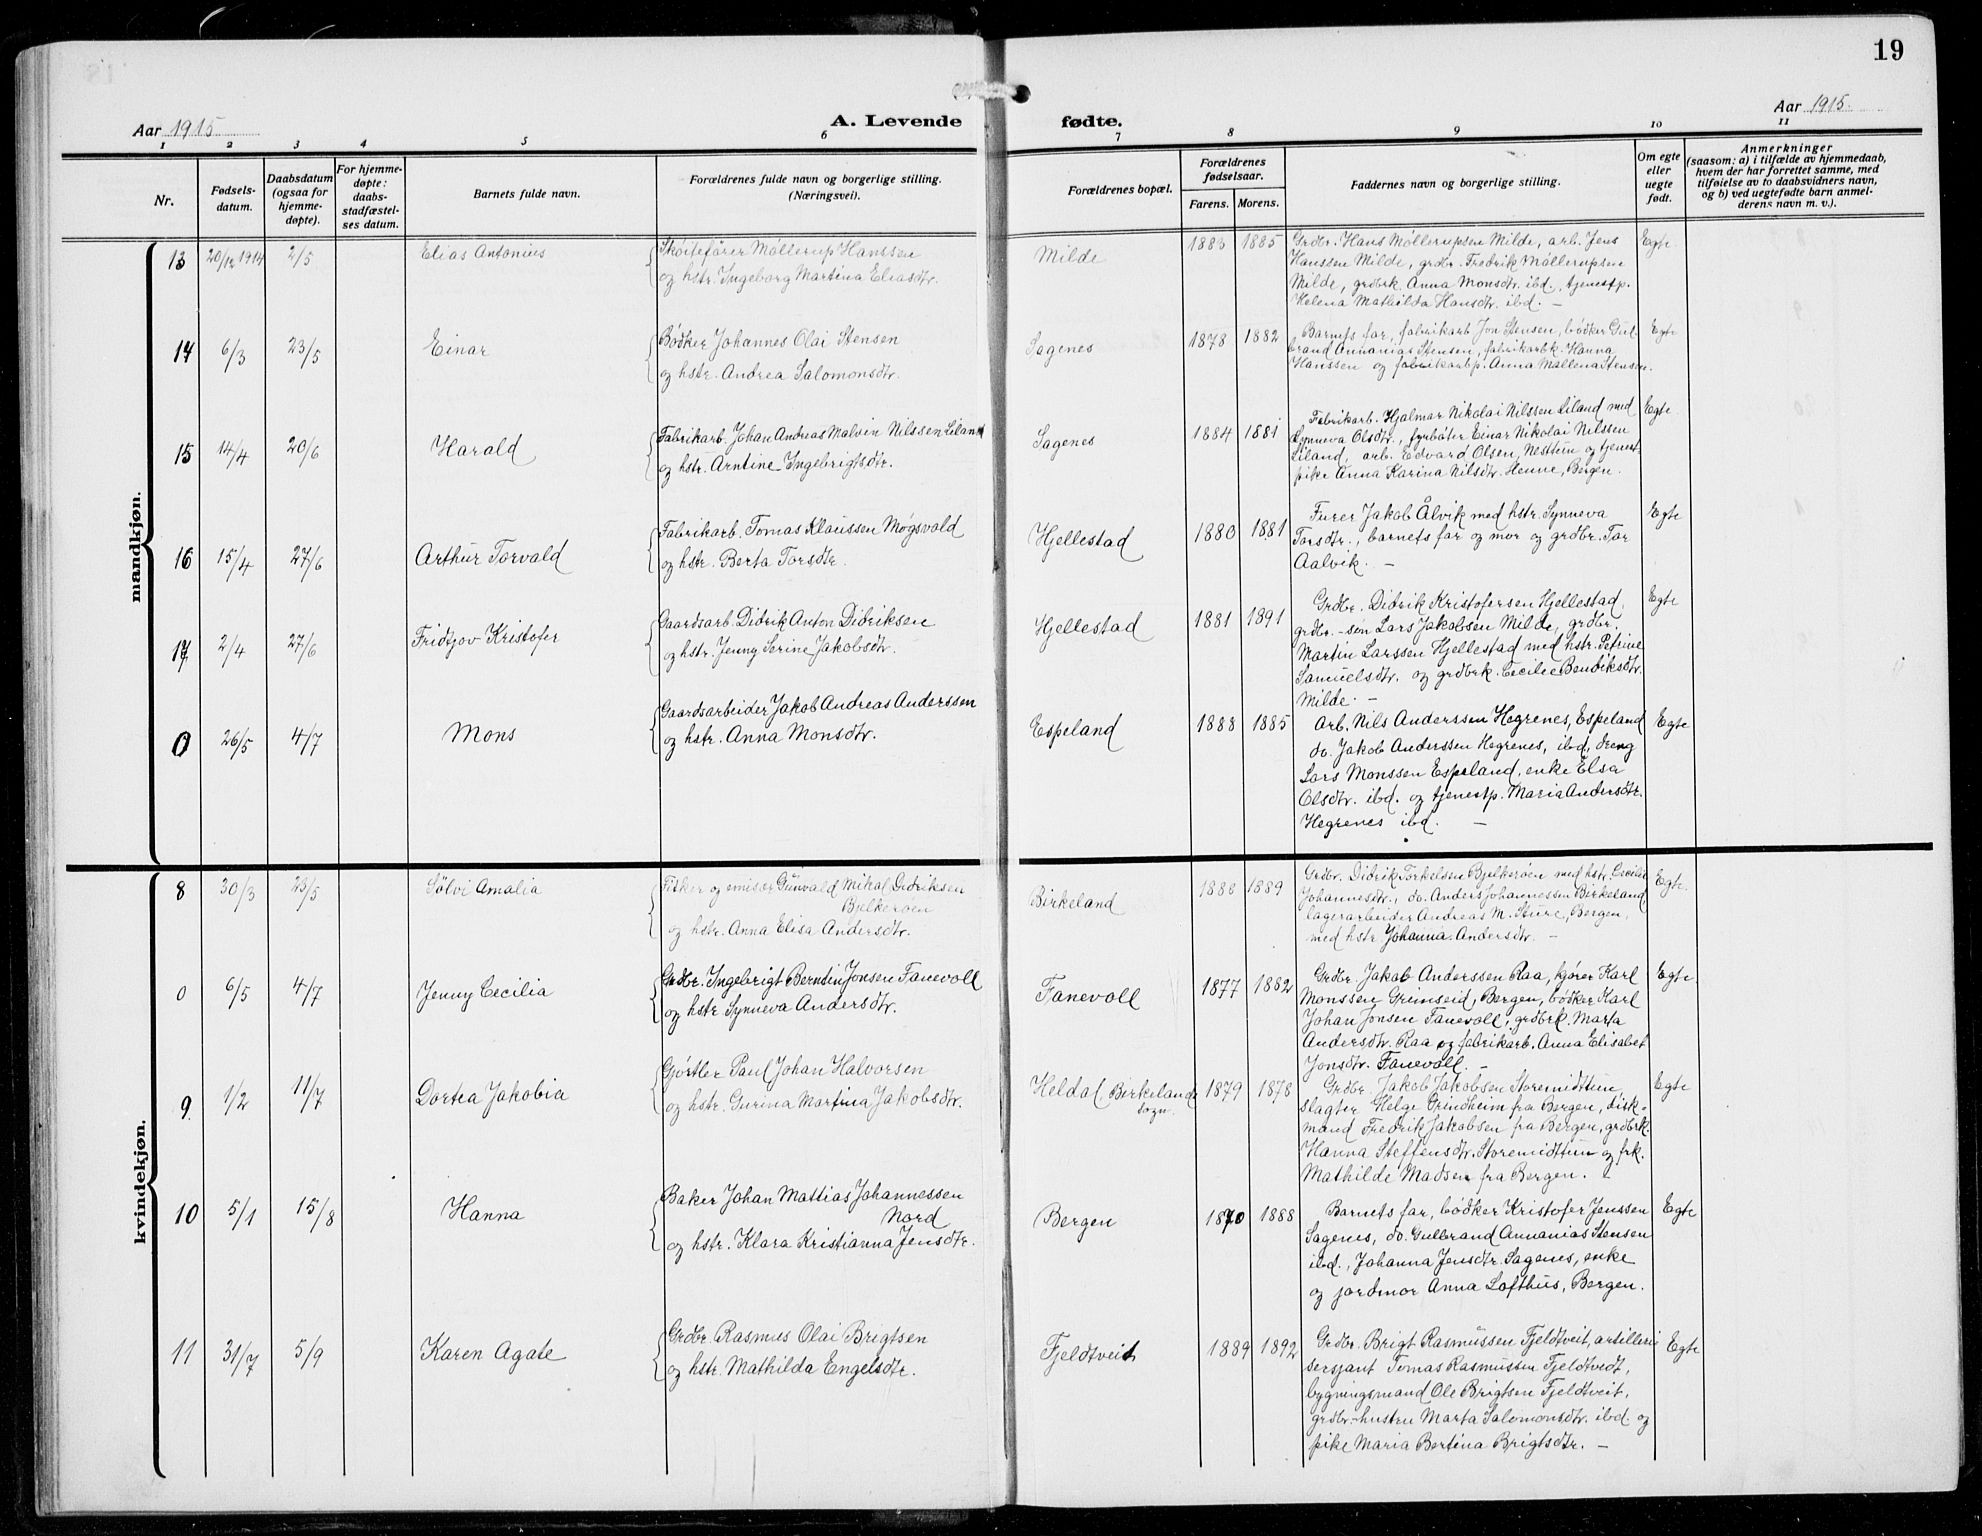 19
Aar 1915
A. Levende
fødte.
Aar 1915.
1 2 3 4 5 6 7 8 9 10 11
Nr.
Fødsels-
datum.
Daabsdatum
(ogsaa for
hjemme-
døpte).
For hjemme-
døpte:
daabs-
stadfæstel-
ses datum.
Barnets fulde navn.
Forældrenes fulde navn og borgerlige stilling.
(Næringsvei).
Forældrenes bopæl.
Forældrenes
fødselsaar.
Farens. Morens.
Faddernes navn og borgerlige stilling.
Om egte
eller
uegte
født.
Anmerkninger
(saasom: a) i tilfælde av hjemmedaab,
hvem der har forrettet samme, med
tilføielse av to daabsvidners navn,
og b) ved uegtefødte barn anmel-
derens navn m. v.).
mandkjøn.
13 20/12 1914 2/5 Elias Antonius
Skøitefører Møllerup Hanssen
og hstr. Ingeborg Martina Eliasdtr.
Milde 1883 1885
Grdbr. Hans Møllerupsen Milde, arb. Jens
Hanssen Milde, grdbr. Fredrik Møllerupsen
Milde, grdbrk. Anna Monsdtr. ibd., tjenestp.
Helena Mathilda Hansdtr. ibd. —
Egte
14 6/3 23/5 Einar
Bødker Johannes Olai Stensen
og hstr. Andrea Salomonsdtr.
Sagenes 1878 1882
Barnets far, fabrikarb. Jon Stensen, bødker Gul-
brand Annanias Stensen, fabrikarbk. Hanna
Hanssen og fabrikarbp. Anna Mallena Stensen.
Egte
15 14/4 20/6 Harald
Fabrikarb. Johan Andreas Malvin Nilssen Liland
og hstr. Arntine Ingebrigtsdtr.
Sagenes 1884 1881
Fabrikarb. Hjalmar Nikolai Nilssen Liland med
Synneva Olsdtr., fyrbøter Einar Nikolai Nilssen
Liland, arb. Edvard Olsen, Nesttun og tjenest-
pike Anna Karina Nilsdtr. Henne, Bergen.
Egte
16 15/4 27/6 Arthur Torvald
Fabrikarb. Tomas Klaussen Møgsvald
og hstr. Berta Torsdtr.
Hjellestad 1880 1881
Furer Jakob Ålvik med hstr. Synneva
Torsdtr., barnets far og mor og grdbr. Tor
Aalvik. —
Egte
17 2/4 27/6 Fridtjov Kristofer
Gaardsarb. Didrik Anton Didriksen
og hstr. Jenny Serine Jakobsdtr.
Hjellestad 1881 1891
Grdbr. Didrik Kristofersen Hjellestad,
grdbr.-søn Lars Jakobsen Milde, grdbr.
Martin Larssen Hjellestad med hstr. Petrine
Samuelsdtr. og grdbrk. Cecilie Bendiksdtr.
Milde. —
Egte
0 26/5 4/7 Mons
Gaardsarbeider Jakob Andreas Anderssen
og hstr. Anna Monsdtr.
Espeland 1888 1885
Arb. Nils Anderssen Hegrenes, Espeland
do. Jakob Anderssen Hegrenes, ibd, dreng
Lars Monssen Espeland, enke Elsa
Olsdtr. ibd. og tjenestp. Maria Andersdtr.
Hegrenes ibd. —
Egte
kvindekjøn.
8 30/3 23/5 Sölvi Amalia
Fisker og emisør Gunvald Mikal Didriksen
Bjelkerøen
og hstr. Anna Elisa Andersdtr.
Birkeland 1888 1889
Grdbr. Didrik Torkelsen Bjelkerøen med hstr. Cecilie
Johannesdtr., do. Anders Johannessen Birkeland
lagerarbeider Andreas M. Sture, Bergen,
med hstr Johanna Andersdtr. —
Egte.
0 6/5 4/7 Jenny Cecilia
Grdbr. Ingebrigt Berntin Jonsen Fanevoll
og hstr Synneva Andersdtr.
Fanevoll 1877 1882
Grdbr. Jakob Anderssen Raa, kjører Karl
Monssen Grimseid, Bergen, bødker Karl
Johan Jonsen Fanevoll, grdbrk. Marta
Andersdtr. Raa og fabrikarb. Anna Elisabet
Jonsdtr. Fanevoll. —
Egte
9 1/2 11/7 Dortea Jakobia
Gjørtler Paul Johan Halvorsen
og hstr. Gurina Martina Jakobsdtr.
Heldal Birkelands
sogn. 1879 1878
Grdbr. Jakob Jakobsen Storemidttun,
slagter Helge Grindheim fra Bergen, disk-
mand Fredrik Jakobsen fra Bergen, grdbrk.
Hanna Steffensdtr. Storemidttun og frk.
Mathilde Madsen fra Bergen. —
Egte
10 5/1 15/8 Hanna
Baker Johan Mattias Johannessen
Nord
og hstr. Klara Kristianna Jensdtr.
Bergen 1870 1888
Barnets far, bødker Kristofer Jenssen
Sagenes, do. Gulbrand Annanias Stensen
ibd., Johanna Jensdtr. Sagenes, enke
og jordmor Anna Lofthus, Bergen.
Egte
11 31/7 5/9 Karen Agate
Grdbr. Rasmus Olai Brigtsen
og hstr. Mathilda Engelsdtr.
Fjeldtveit 1889 1892
Grdbr. Brigt Rasmussen Fjeldtveit, artilleri
sersjant Tomas Rasmussen Fjeldtvedt,
bygningsmand Ole Brigtsen Fjeldtveit,
grdbr-hustru Marta Salomonsdtr. ibd. og
pike Maria Bertina Brigtsdtr. —
Egte